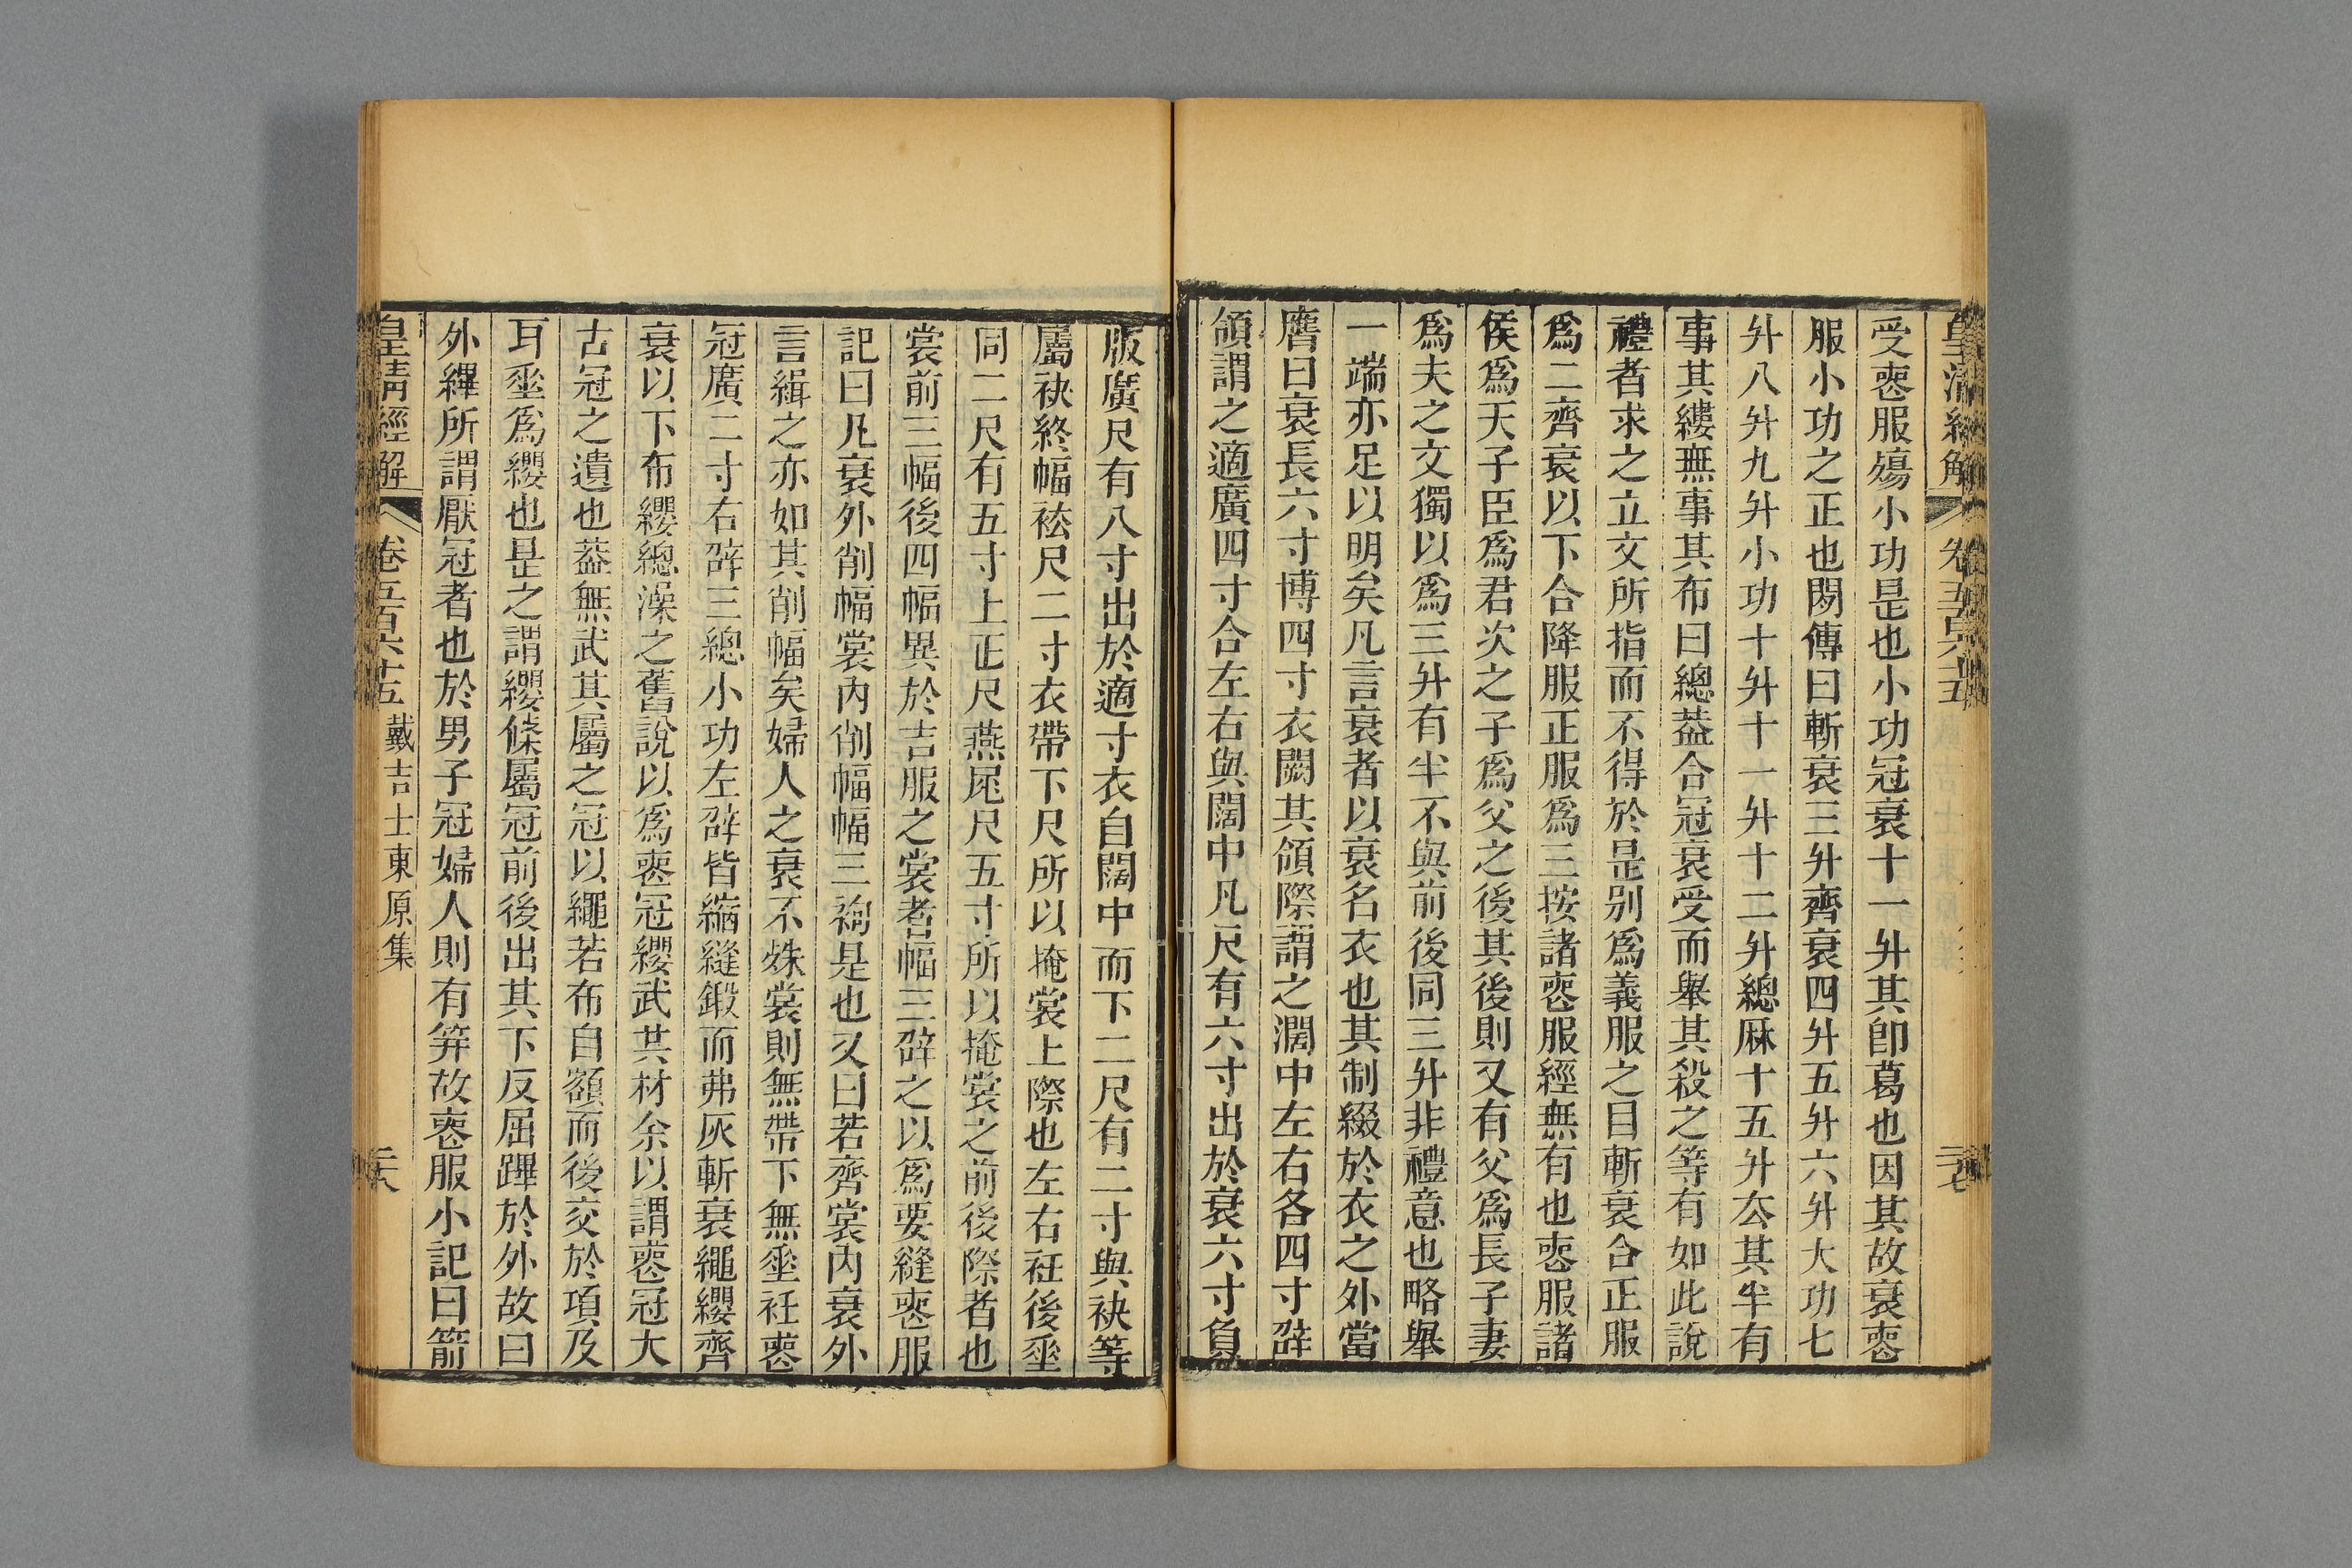 皇清經解 卷五百六十五 二十七
受喪服殤小功是也小功冠衰十一升其卽葛也因其故衰喪
服小功之正也閒傳曰斬衰三升齊衰四升五升六升大功七
升八升九升小功十升十一升十二升緦麻十五升去其半有
事其縷無事其布曰緦葢合冠衰受而舉其殺之等有如此說
禮者求之立文所指而不得於是別爲義服之目斬衰合正服
爲二齊衰以下合降服正服爲三按諸喪服經無有也喪服諸
侯爲天子臣爲君次之子爲父之後其後則又有父爲長子妻
爲夫之文獨以爲三升有半不與前後同三升非禮意也略舉
一端亦足以明矣凡言衰者以衰名衣也其制綴於衣之外當
膺曰衰長六寸博四寸衣闕其領際謂之濶中左右各四寸辟
領謂之適廣四寸合左右與闊中凡尺有六寸出於衰六寸負
版廣尺有八寸出於適寸衣自闊中而下二尺有二寸與袂等
屬袂終幅袪尺二寸衣帶下尺所以掩裳上際也左右衽後垂
同二尺有五寸上正尺燕尾尺五寸所以掩裳之前後際者也
裳前三幅後四幅異於吉服之裳者幅三辟之以爲要縫喪服
記曰凡衰外削幅裳內削幅幅三袧是也又曰若齊裳內衰外
言緝之亦如其削幅矣婦人之衰不殊裳則無帶下無垂衽喪
冠廣二寸右辟三緦小功左辟皆縮縫鍛而弗灰斬衰繩纓齊
衰以下布纓緦澡之舊說以爲喪冠纓武共材余以謂喪冠大
古冠之遺也葢無武其屬之冠以繩若布自額而後交於項及
耳垂爲纓也是之謂纓條屬冠前後出其下反屈蹕於外故曰
外縪所謂厭冠者也於男子冠婦人則有笄故喪服小記曰箭
皇清經解 卷五百六十五 戴吉士東原集 二十八